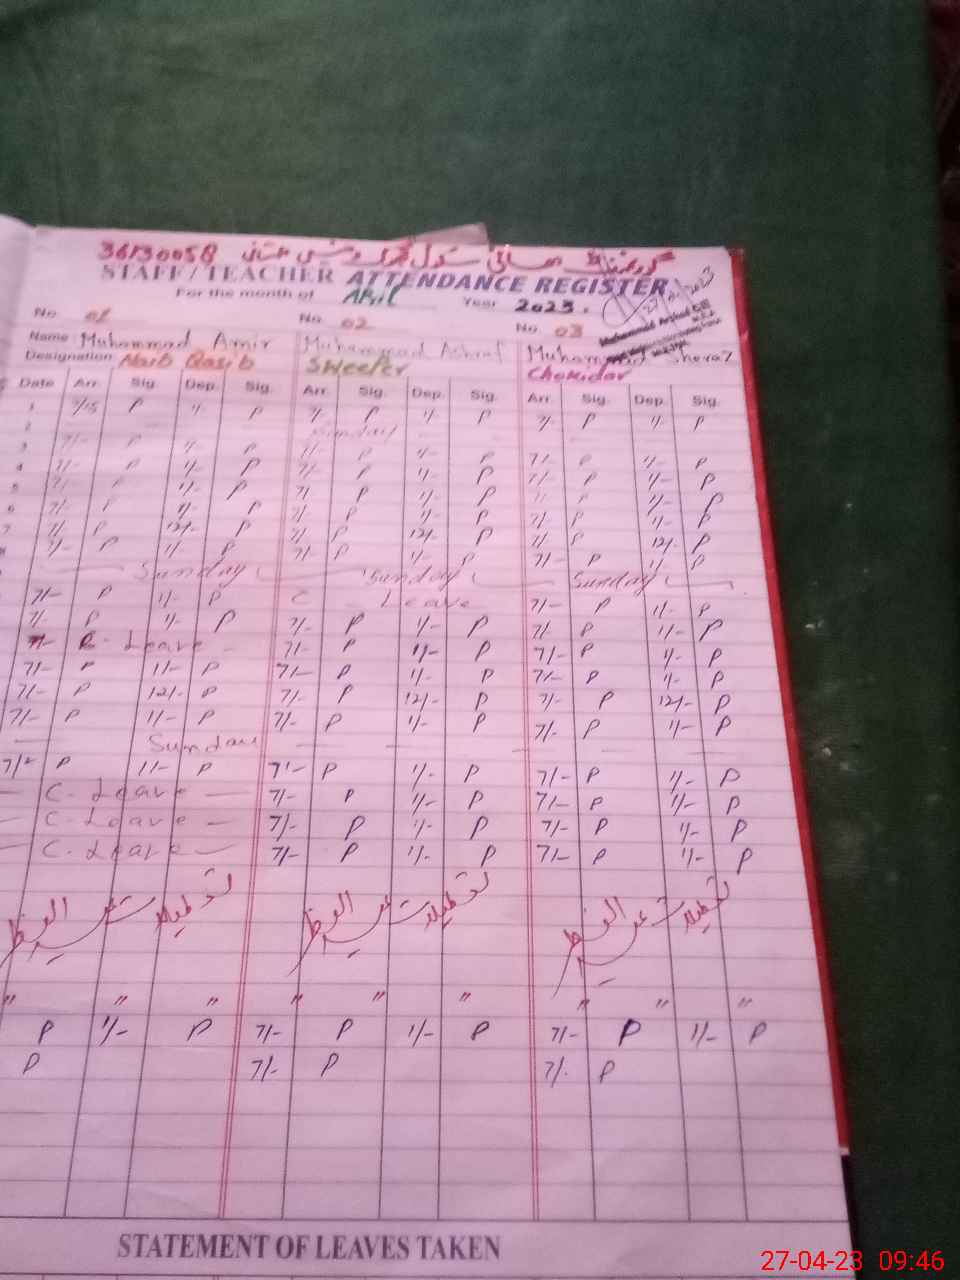 36130058
STAFF / TEACHER ATTENDANCE REGISTER
For the month of April Year 2023.
No. 01 No. 02 No. 03
Name Muhammad Amir Muhammad Ashraf Muhammad Sheraz
Designation Naib Qasib Sweeper Chokidar
Date Arr. Sig. Dep. Sig. Arr. Sig. Dep. Sig. Arr. Sig. Dep. Sig.
1 7/15 P 1/- P 7/- P 1/- P 7/- P 1/- P
2 Sunday
3 7/- P 1/- P 7/- P 1/- P 7/- P 1/- P
4 7/- P 1/- P 7/- P 1/- P 7/- P 1/- P
5 7/- P 1/- P 7/ P 1/- P 7/- P 1/- P
6 7/- P 1/- P 7/- P 1/- P 7/- P 1/- P
7 7/- P 12/- P 7/- P 12/- P 7/- P 12/- P
7/- P 1/- P 7/- P 1/- P 7/- P 1/- P
Sunday Sunday Sunday
7/- P 1/- P C Leave 7/- P 1/- P
7/- P 1/- P 7/- P 1/- P 7/- P 1/- P
7/- C - Leave - 7/- P 1/- P 7/- P 1/- P
7/- P 1/- P 7/- P 1/- P 7/- P 1/- P
7/- P 12/- P 7/- P 12/- P 7/- P 12/- P
7/- P 1/- P 7/- P 1/- P 7/- P 1/- P
Sunday
P 1/- P 7/- P 1/- P 7/- P 1/- P
C - Leave 7/- P 1/- P 7/- P 1/- P
C - Leave 7/- P 1/- P 7/- P 1/- P
C - Leave 7/- P 1/- P 7/- P 1/- P
تعطیلات عید الفطر تعطیلات عید الفطر تعطیلات عید الفطر
" " " " " " " " "
P 1/- P 7/- P 1/- P 7/- P 1/- P
P 7/- P 7/- P
STATEMENT OF LEAVES TAKEN
27-04-23 09:46